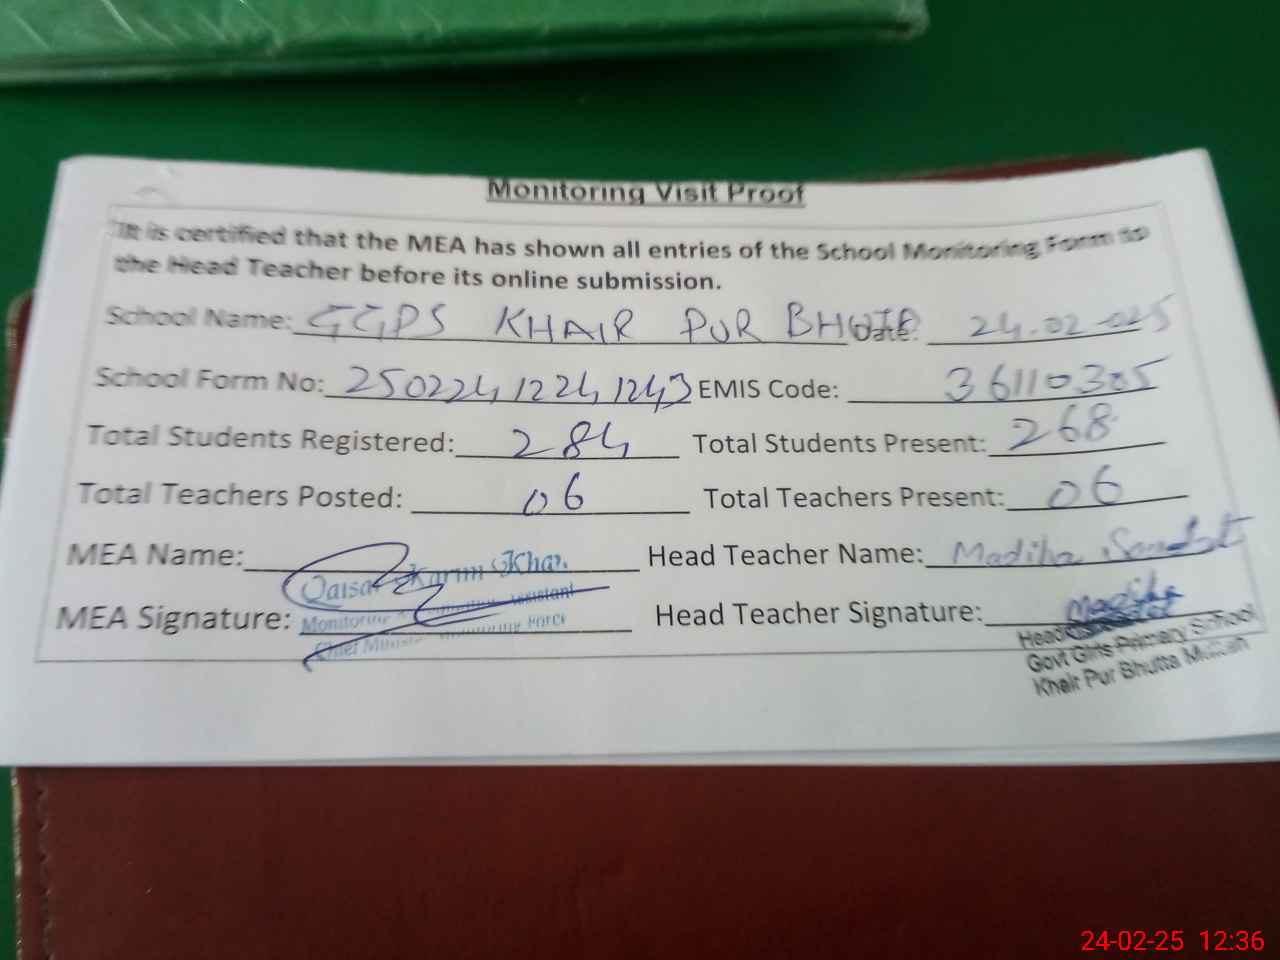 Monitoring Visit Proof
It is certified that the MEA has shown all entries of the School Monitoring Form to
the Head Teacher before its online submission.
School Name: GGPS KHAIR PUR Date: 24.02-025
School Form No: 25022412241243 EMIS Code: 36110305
Total Students Registered: 284 Total Students Present: 268
Total Teachers Posted: 06 Total Teachers Present: 06
MEA Name: Head Teacher Name: Madiha
Qaisar Karim Khan
MEA Signature: Head Teacher Signature: Madiha
Monitoring Assistant
Chief Monitoring Force
Head
Govt Girls Primary School
Khair Pur Bhutta Multan
24-02-25 12:36